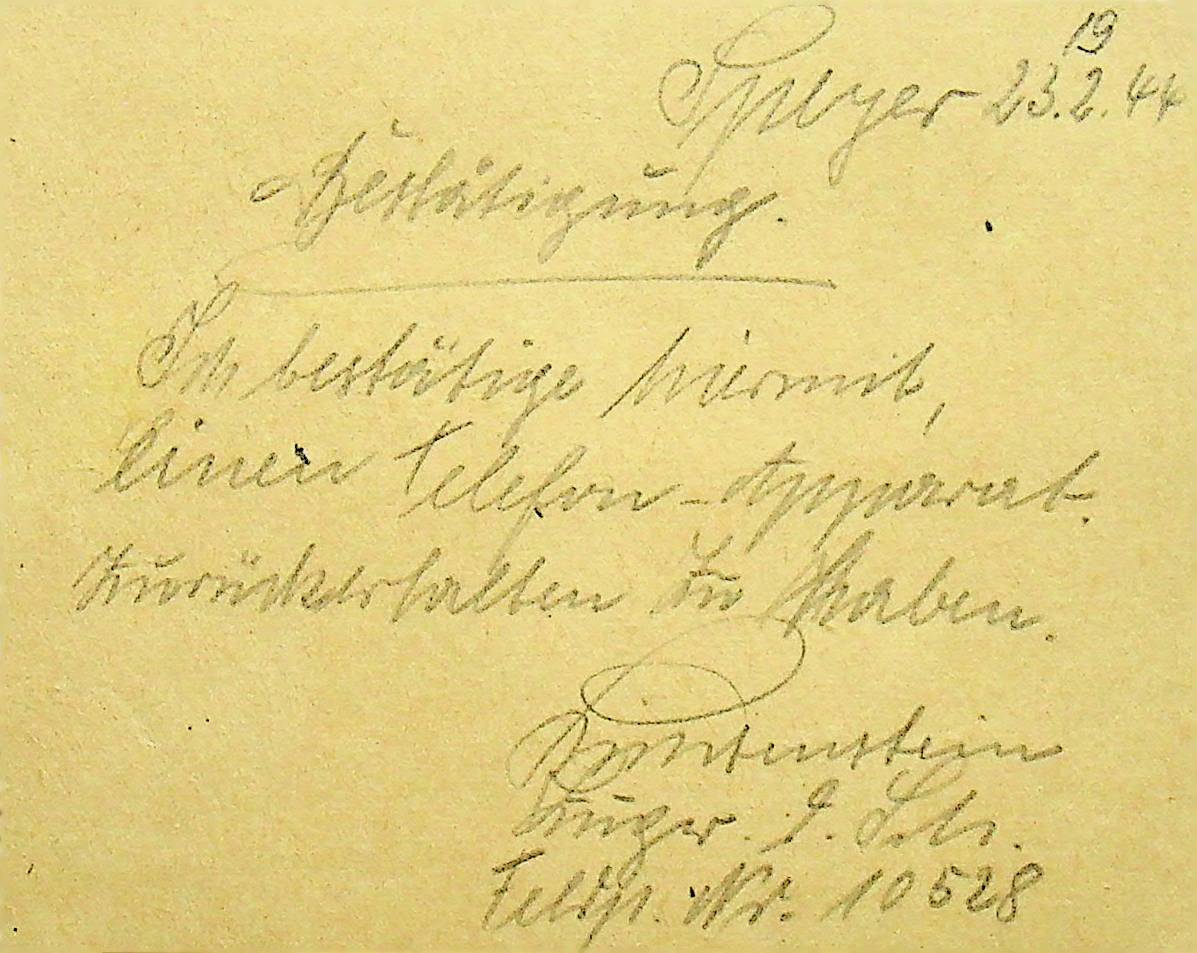 19
Speyer 23.2.44
Bestätigung.
Ich bestätige hiermit,
einen Telefon-Apparat.
zurückerhalten zu haben.
Feldp. Nr. 10528